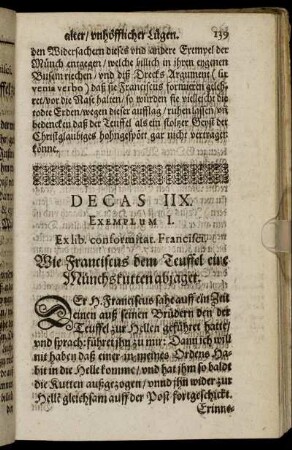 alter / vnhöfflicher Lügen. 139
den Widersachern dieses vnd andere Exempel der
Münch entgegen / welche billich in jhren eygenen
Busem riechen / vnd diß Drecks Argument (ſit
venia verbo) daß sie Franciscus formieren geleh-
ret / vor die Nase halten / so würden sie vielleicht die
todte Erden / wegen dieser aufflag / ruhen lassen / vñ
bedencken daß der Teuffel als ein stoltzer Geyst der
Christglaubiges hohngespött gar nicht vertragen
könne.
DECAS IIX.
EXEMPLUM I.
Ex lib. conformitat. Francisci.
Wie Franciscus dem Teuffel eine
Münchskutten abjaget.
DEr H. Franciscus sahe auff ein Zeit
einen auß seinen Brüdern den der
Teuffel zur Hellen geführet hatte /
vnd sprach: führet jhn zu mir: Dañ ich will
nit haben daß einer in meines Ordens Ha-
bit in die Helle komme / vnd hat jhm so baldt
die Kutten außgezogen / vnnd jhn wider zur
Hell gleichsam auff der Post fortgeschickt.
Erinne-